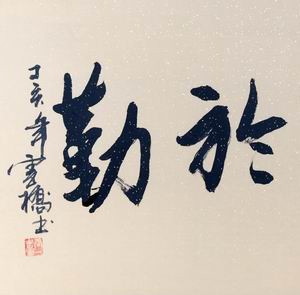 於勤
丁亥年雲橋书